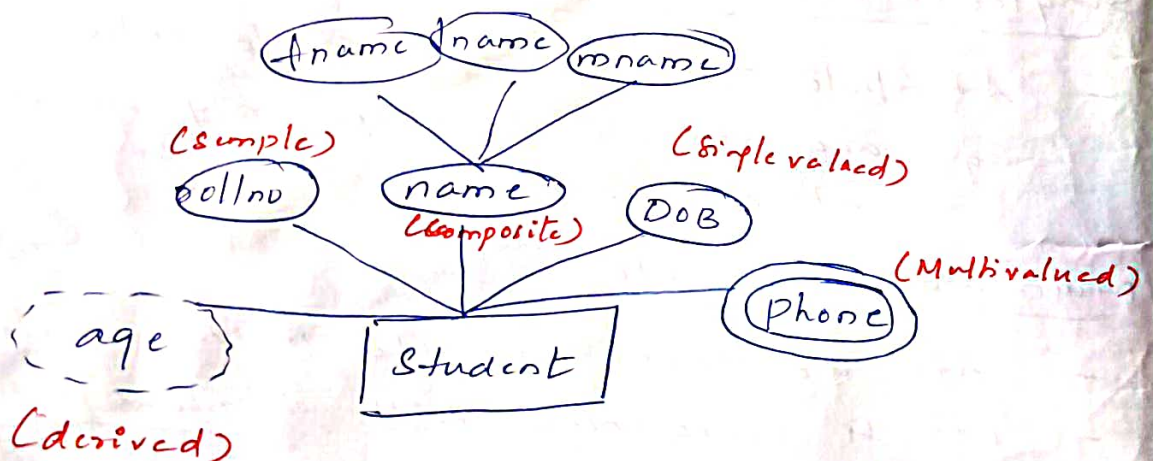 fname lname mname
(simple)
(Single valued)
rollno name DOB
(composite)
(Multivalued)
phone
age
Student
(derived)